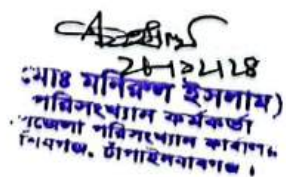 ২৮/১২/২৪
(মোঃ মনিরুল ইসলাম)
পরিসংখ্যান কর্মকর্তা
উপজেলা পরিসংখ্যান কার্যালয়
শিবগঞ্জ, চাঁপাইনবাবগঞ্জ।